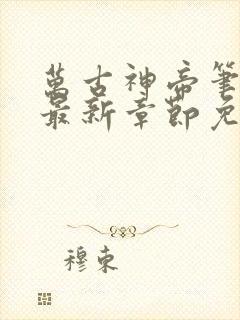 萬古神帝筆
最新章節免
穆東